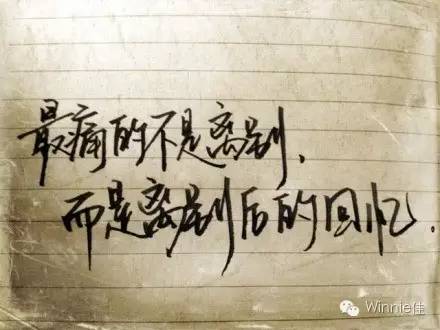 最痛的不是离别，
而是离别后的回忆.
Winnie佳